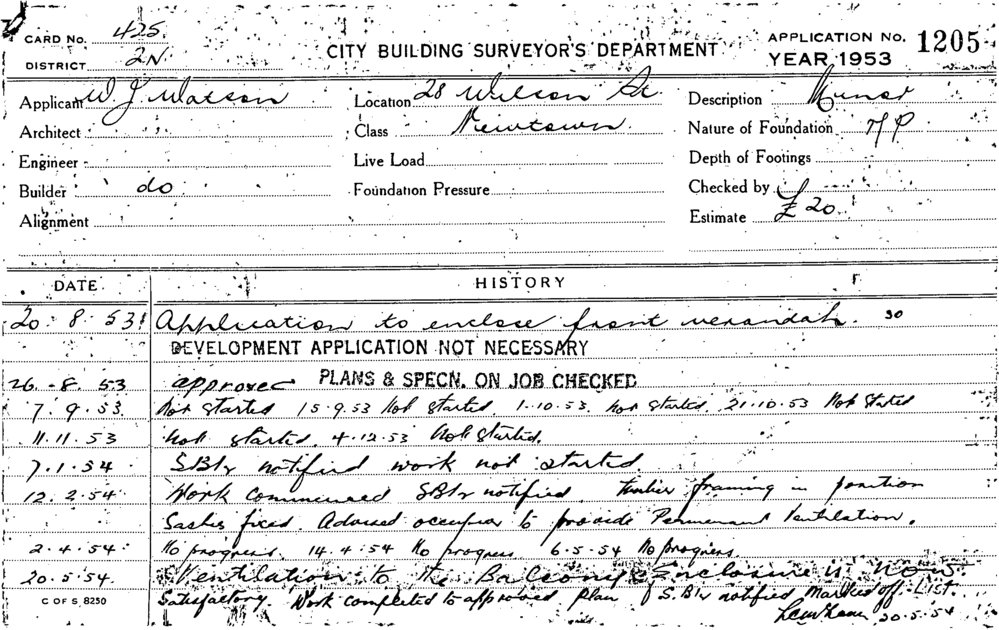 CARD NO. 425
DISTRICT 2N.
CITY BUILDING SURVEYOR'S DEPARTMENT
APPLICATION NO. 1205
YEAR 1953
Applicant W J Watson
Location 28 Wilson St
Description Minor
Architect
Class Newtown
Nature of Foundation
Engineer
Live Load
Depth of Footings
Builder do
Foundation Pressure
Checked by
Alignment
Estimate £20
DATE HISTORY
20. 8. 53 Application to enclose front verandah. 30
DEVELOPMENT APPLICATION NOT NECESSARY
26. 8. 53 approved PLANS & SPECN. ON JOB CHECKED
7. 9. 53. Not started 15.9.53 Not started. 1.10.53. not started. 21.10.53 Not started
11. 11. 53 not started. 4.12.53 Not started.
7. 1. 54. notified work not started.
12. 2. 54. Work commenced notified. timber framing in position
Sashes fixed. Advised occupier to provide Permanent Ventilation.
2. 4. 54. No progress. 14.4.54 No progress 6.5.54 No progress
20. 5. 54. Ventilation to the Balcony Enclosure is now
C OF S 8250 Satisfactory. Work completed to approved plan notified Marked off LIST.
20.5.54